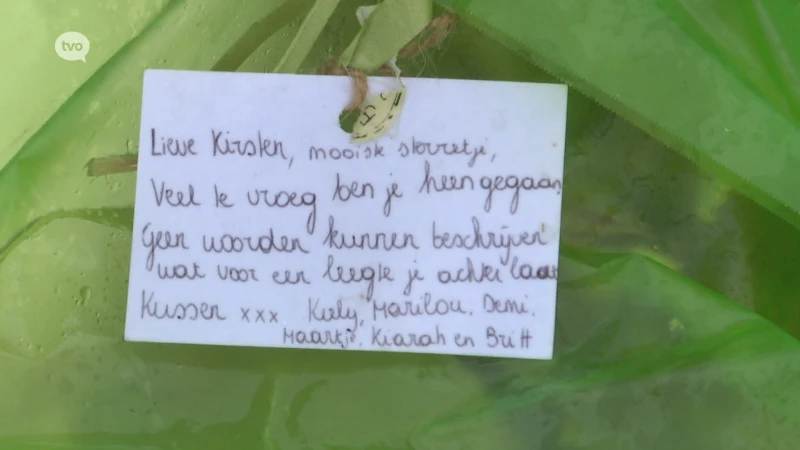 tvo
Lieve Kirsten, mooiste sterretje,
Veel te vroeg ben je heengegaan
Geen woorden kunnen beschrijven
wat voor een leegte je achterlaat
Kussen xxx Kiely, Marilou, Demi,
Maartje, Kiarah en Britt